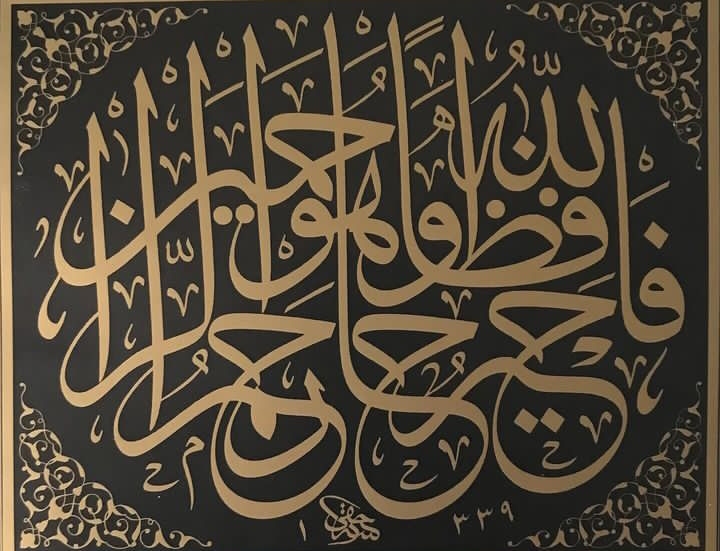 فالله خير حافظا وهو أرحم الراحمين
١٣٣٩